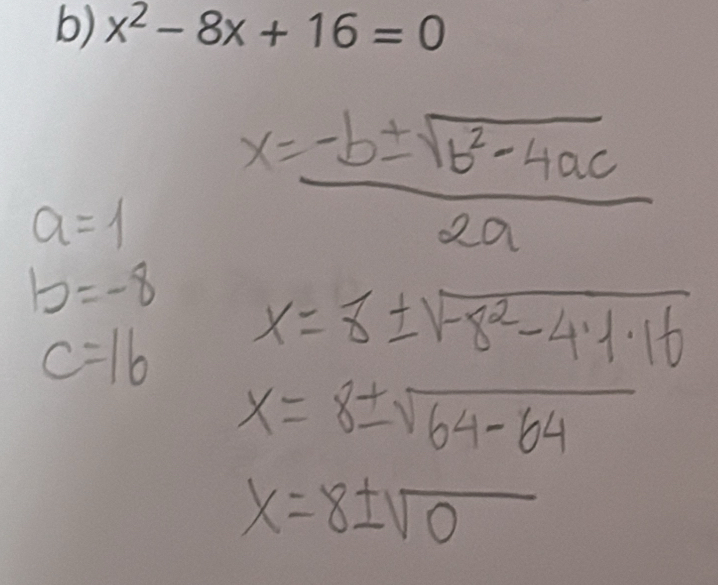 b) x² – 8x + 16 = 0
x = -b ± √b² - 4ac
2a
a = 1
b = -8
c = 16
x = 8 ± √-8² - 4·1·16
x = 8 ± √64 - 64
x = 8 ± √0